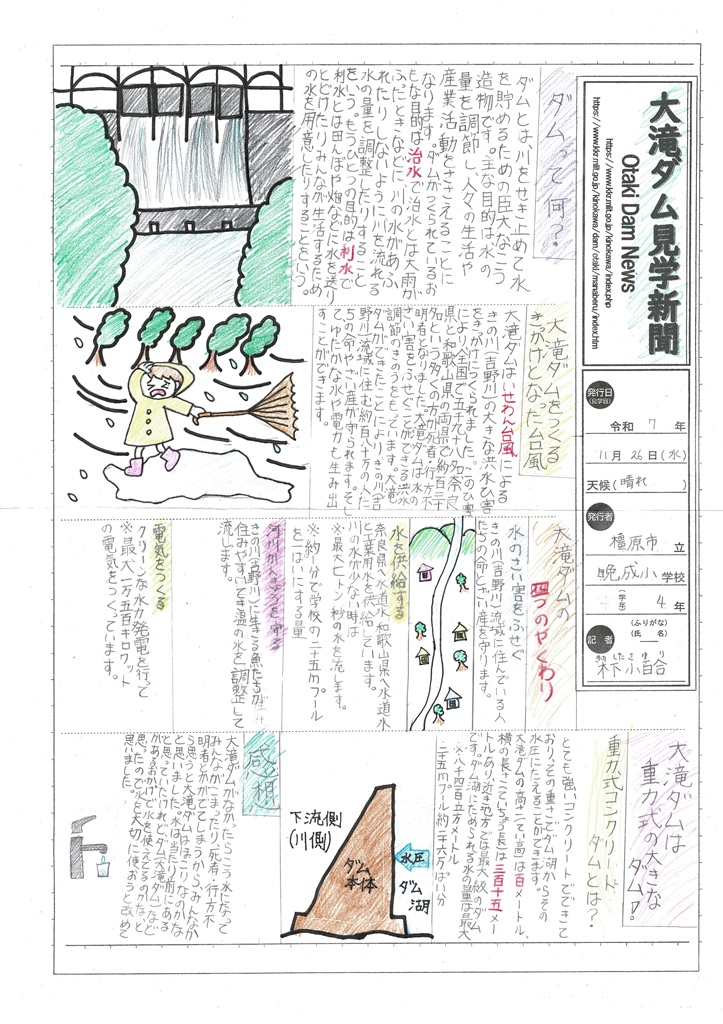 大滝ダム見学新聞
Otaki Dam News
https://www.kkr.mlit.go.jp/kinokawa/index.php
https://www.kkr.mlit.go.jp/kinokawa/dam/otaki/manaberu/index.htm
発行日
(見学日)
令和 7 年
11月26日(水)
天候(晴れ)
発行者
橿原市 立
晩成小 学校
(学年) 4 年
記者
(ふりがな)
(氏名)
きのしたさゆり
木下小百合
ダムって何?
ダムとは、川をせき止めて水
を貯めるための巨大なこう
造物です。主な目的は水の
量を調節し、人々の生活や
産業活動をささえることに
なります。ダムがつくられているお
もな目的は治水で治水とは大雨が
ふったときなどに、川の水があふ
れたりしないように川を流れる
水の量を調整したりすること
をいう。もうひとつの目的は利水で
利水とは田んぼや畑などに水を送り
とどけたりみんなが生活するため
の水を用意したりすることをいう。
大滝ダムをつくる
きっかけとなった台風
大滝ダムはいせわん台風による
きの川(吉野川)の大きな洪水ひ害
をきっかけにつくられました。このひ害
により、全国で五千九十八名、奈良
県と和歌山県の両県で約百三十
名という多くの方が死者・行方不
明者となりました。大滝ダムは水の
さい害をふせぐことができる洪水
調節のきのうをもしています。大滝
ダムができたことにより、きの川(吉
野川)流域に住む約百八十万の人た
ちの命やさい産が守られます。そし
てゆたかな水や電力も生み出
すことができます。
大滝ダムの
四つのやくわり
水のさい害をふせぐ
きの川(吉野川)流域に住んでいる人
たちの命とざい産を守ります。
水を供給する
奈良県へ水道水、和歌山県へ水道水
と工業用水を供給しています。
川の水が少ない時は
※最大七トン/秒の水を流します。
※約一分で学校の二十五mプール
を一はいにする量
河川かんきょうを守る
きの川(吉野川)に生きる魚たちが
住みやすいてき温の水を調整して
流します。
電気をつくる
クリーンな水力発電を行って
※最大一万五百キロワット
の電気をつくっています。
大滝ダムは
重力式の大きな
ダム!
重力式コンクリート
ダムとは?
とても強いコンクリートでできて
おり、その重さでダム湖からその
水圧にたえることができます。
大滝ダムの高さ(てい高)は百メートル、
横の長さ(ていちょう長)は三百十五メー
トルあり、近き地方では最大級のダム
です。ダム湖にためられる水の量は最大
※八千四百立方メートル
二十五mプール約二十六万ぱい分
下流側
(川側)
ダム
本体
水圧
ダム
湖
感想
大滝ダムがなかったらこう水になって
みんながこまったり、死者・行方不
明者とかがでてしまうから、みんなか
ら思うと大滝ダムはほこりなのかな
と思いました。水は当たり前にある
と思っていたけれど、ダム(大滝ダム)など
があるおかげで水を使えてるのかな、と
思ったので水を大切に使おうと改めて
思いました。